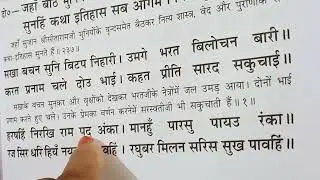 दो०— जहाँ बैठि मुनि
सुनहिं कथा इतिहास सब आगम
जहाँ सुजान श्रीसीतारामजी मुनियोंके वृन्दसमेत बैठकर नित्य शास्त्र, वेद और पुराणोंके
कथा-इतिहास सुनते हैं॥ २३७॥
सखा बचन सुनि बिटप निहारी। उमगे भरत बिलोचन बारी॥
करत प्रनाम चले दोउ भाई। कहत प्रीति सारद सकुचाई॥
सखाके वचन सुनकर और वृक्षोंको देखकर भरतजीके नेत्रोंमें जल उमड़ आया। दोनों भाई
प्रणाम करते हुए चले। उनके प्रेमका वर्णन करनेमें सरस्वतीजी भी सकुचाती हैं॥ १॥
हरषहिं निरखि राम पद अंका। मानहुँ पारसु पायउ रंका॥
रज सिर धरि हियँ नय वहिं। रघुबर मिलन सरिस सुख पावहिं॥